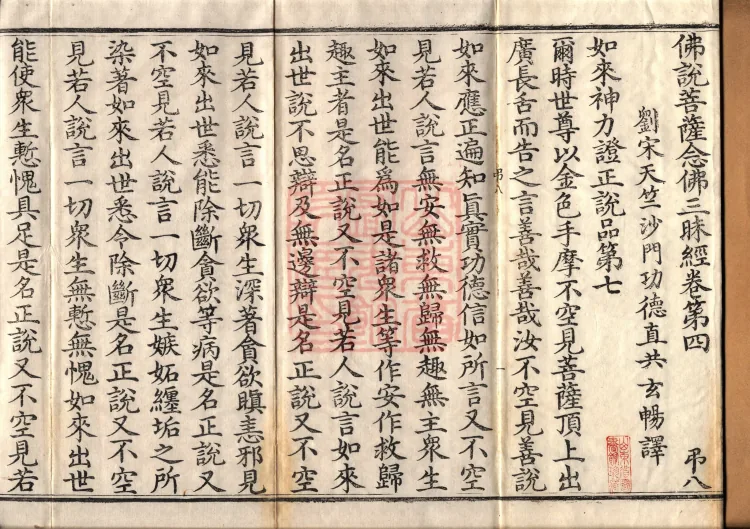 佛說菩薩念佛三昧經卷第四 弔八
劉宋天竺沙門功德直共玄暢譯
如來神力證正說品第七
爾時世尊以金色手摩不空見菩薩頂上出
廣長舌而告之言善哉善哉汝不空見善說
弔八
如來應正遍知眞實功德信如所言又不空
見若人說言無安無救無歸無趣無主衆生
如來出世能爲如是諸衆生等作安作救歸
趣主者是名正說又不空見若人說言如來
出世說不思辯及無邊辯是名正說又不空
見若人說言一切衆生深著貪欲瞋恚邪見
如來出世悉能除斷貪欲等病是名正說又
不空見若人說言一切衆生嫉妬纏垢之所
染著如來出世悉令除斷是名正說又不空
見若人說言一切衆生無慙無愧如來出世
能使衆生慙愧具足是名正說又不空見若